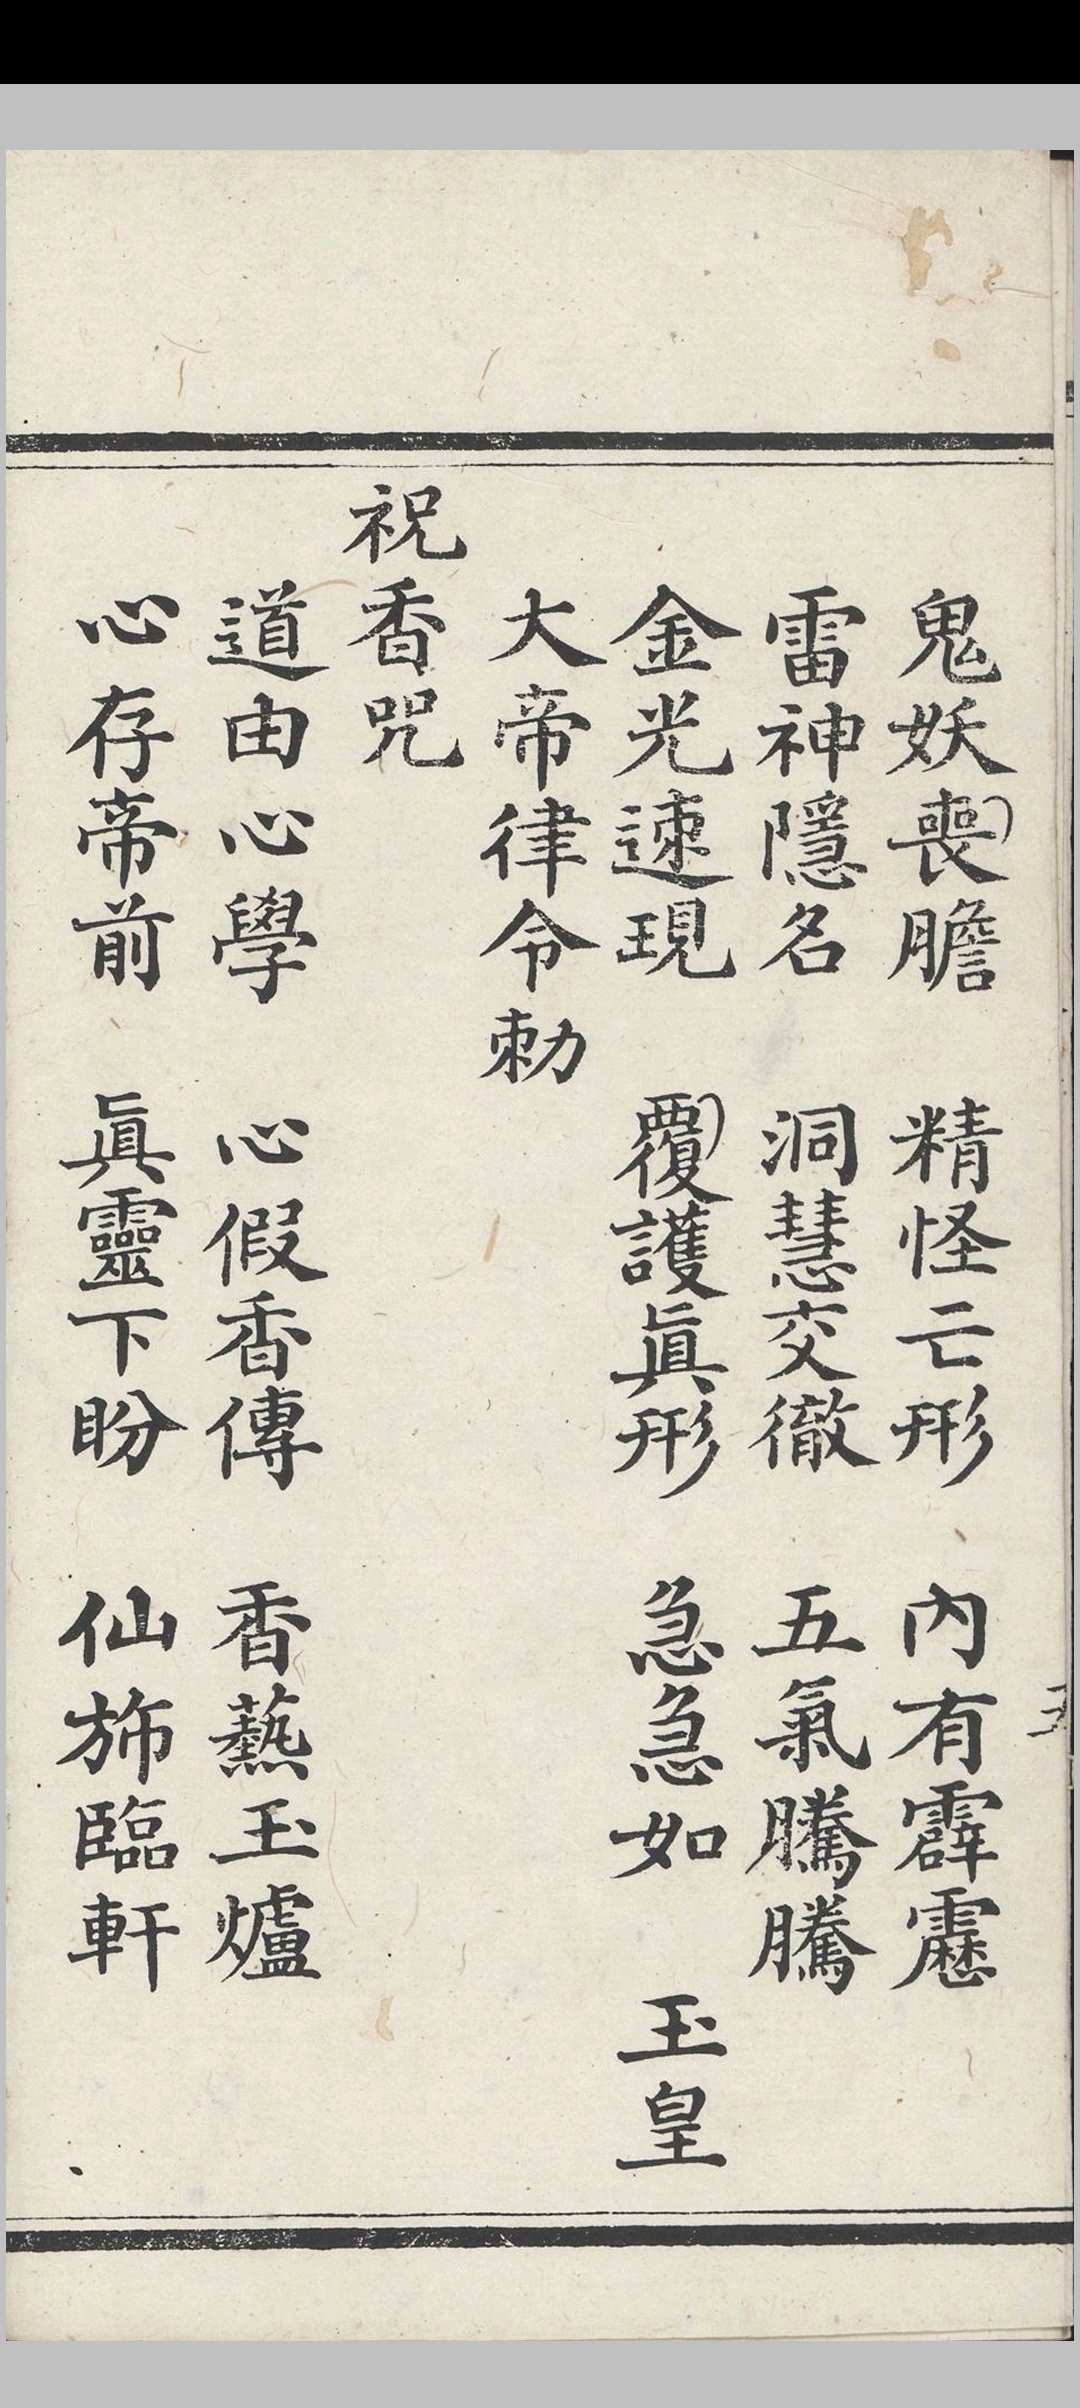 鬼妖喪膽　精怪亡形　內有霹靂
雷神隱名　洞慧交徹　五氣騰騰
金光速現　覆護眞形　急急如　玉皇
大帝律令勅
祝香咒
道由心學　心假香傳　香爇玉爐
心存帝前　眞靈下盼　仙旆臨軒